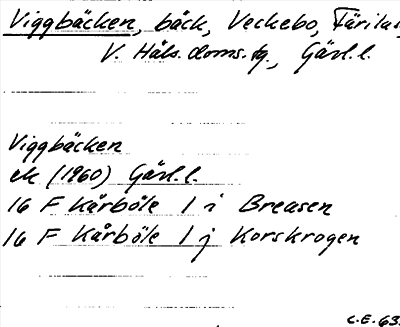 Viggbäcken, bäck, Veckebo, Färila,
V. Häls. doms. fg., Gävl. l.
Viggbäcken
ek (1960) Gävl. l.
16 F Kårböle 1 i Breasen
16 F Kårböle 1 j Korskrogen
C.E. 63.